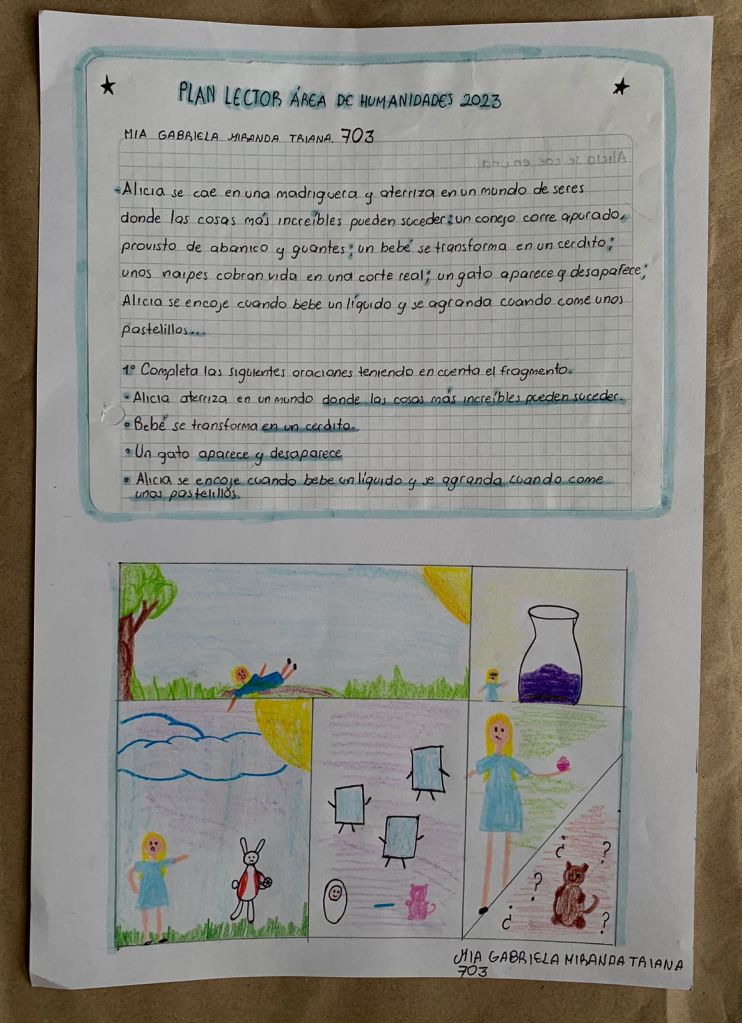 PLAN LECTOR ÁREA DE HUMANIDADES 2023
MIA GABRIELA MIRANDA TRIANA. 703
Alicia se cae en una
-Alicia se cae en una madriguera y aterriza en un mundo de seres
donde las cosas más increíbles pueden suceder: un conejo corre apurado,
provisto de abanico y guantes; un bebé se transforma en un cerdito;
unos naipes cobran vida en una corte real; un gato aparece y desaparece;
Alicia se encoje cuando bebe un líquido y se agranda cuando come unos
pastelillos...
1º Completa las siguientes oraciones teniendo en cuenta el fragmento.
• Alicia aterriza en un mundo donde las cosas más increíbles pueden suceder.
• Bebé se transforma en un cerdito.
• Un gato aparece y desaparece
• Alicia se encoje cuando bebe un líquido y se agranda cuando come
unos pastelillos.
¿ ?
? ¿ ?
MIA GABRIELA MIRANDA TRIANA
703